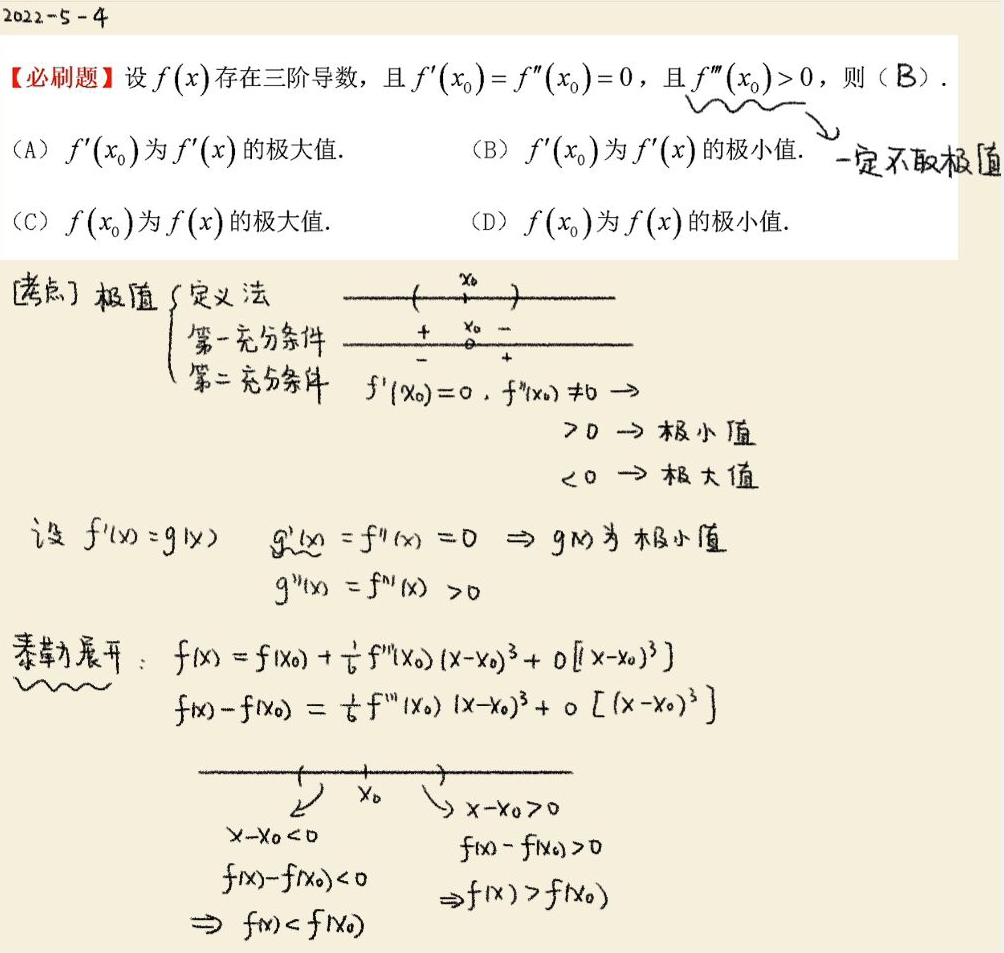 2022-5-4
【必刷题】设 f(x) 存在三阶导数，且 f′(x₀)=f″(x₀)=0，且 f‴(x₀)>0，则（B）.
（A）f′(x₀)为 f′(x)的极大值.
（B）f′(x₀)为 f′(x)的极小值.
一定不取极值
（C）f(x₀)为 f(x)的极大值.
（D）f(x₀)为 f(x)的极小值.
[考点] 极值 { 定义法
( x₀ )
第一充分条件
+ x₀ -
- 0 +
第二充分条件 f'(x₀)=0，f"(x₀)≠0 →
>0 → 极小值
<0 → 极大值
设 f'(x)=g(x) g'(x) = f"(x) = 0 ⇒ g(x)为极小值
g"(x) = f'''(x) >0
泰勒展开： f(x) = f(x₀) + 1/6 f'''(x₀)(x-x₀)³ + o[(x-x₀)³]
f(x)-f(x₀) = 1/6 f'''(x₀)(x-x₀)³ + o[(x-x₀)³]
( x₀ )
x-x₀<0
f(x)-f(x₀)<0
⇒ f(x)<f(x₀)
x-x₀>0
f(x)-f(x₀)>0
⇒f(x)>f(x₀)